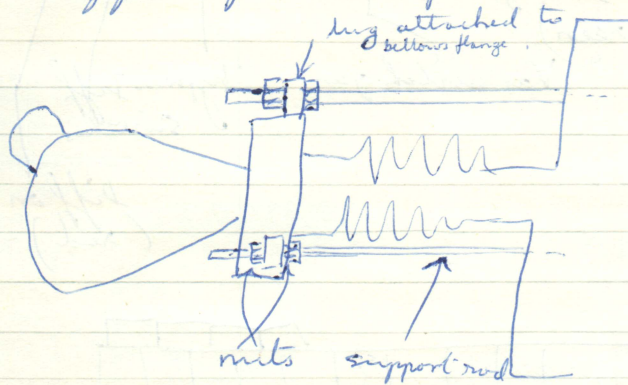 lug attached to
bellows flange.
nuts support rod